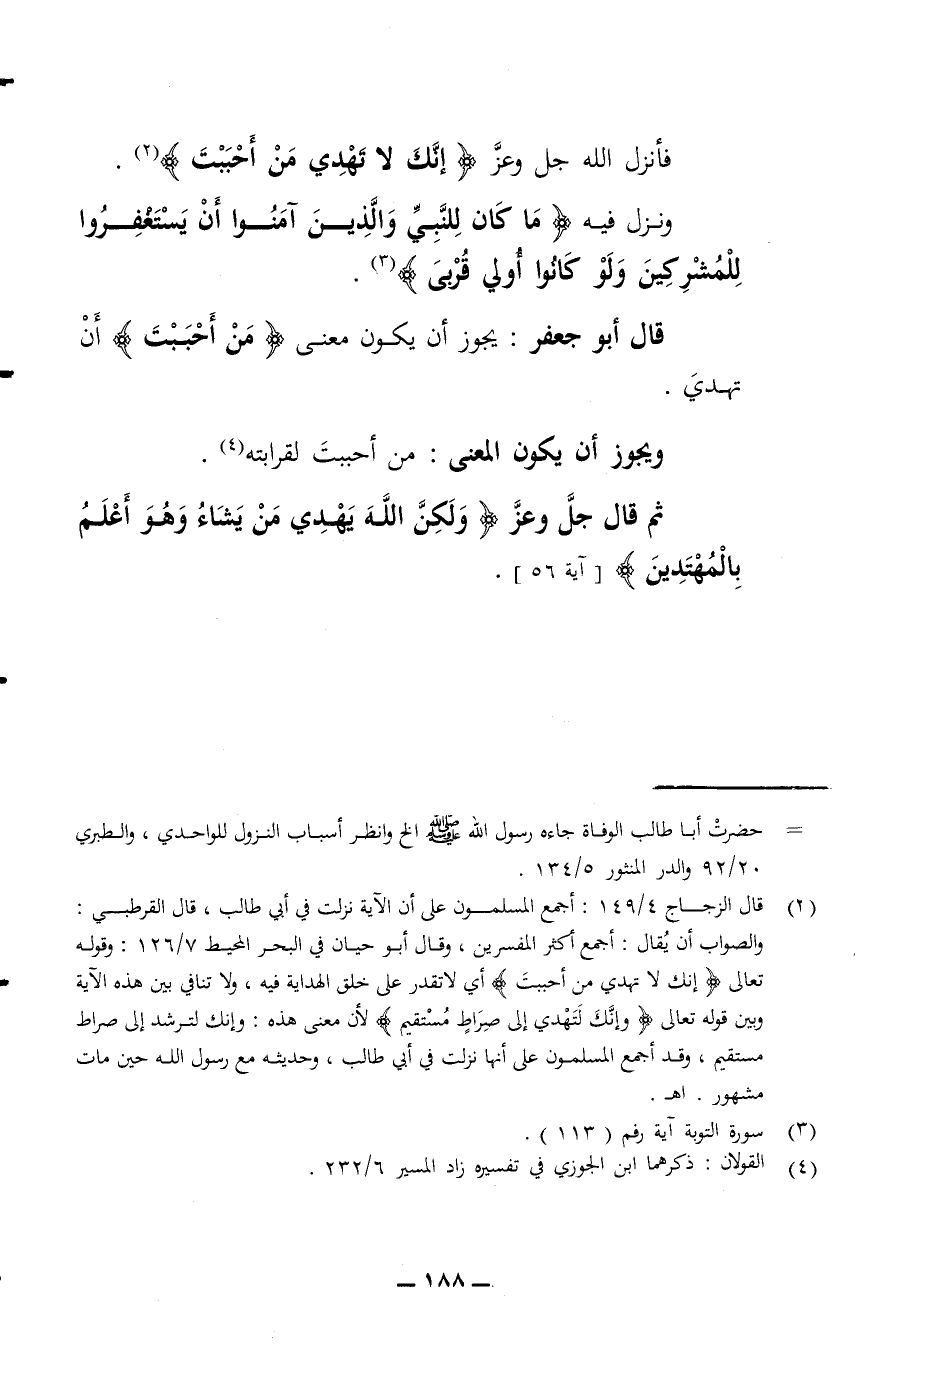 فأنزل الله جل وعزَّ ﴿ إِنَّكَ لا تَهْدِي مَنْ أَحْبَبْتَ ﴾(٢) .
ونـزل فيـه ﴿ مَا كَان لِلنَّبِيِّ وَالَّذِيـنَ آمَنُـوا أَنْ يَسْتَغْفِـرُوا
لِلْمُشْرِكِينَ وَلَوْ كَانُوا أُولي قُرْبىَ ﴾(٣) .
قال أبو جعفر : يجوز أن يكـون معنـى ﴿ مَنْ أَحْبَبْتَ ﴾ أَنْ
تهـديَ .
ويجوز أن يكون المعنى : من أحببتَ لقرابته(٤) .
ثم قال جلَّ وعزَّ ﴿ وَلَكِنَّ اللَّـهَ يَهْـدِي مَنْ يَشَاءُ وَهُـوَ أَعْلَـمُ
بِالْمُهْتَدِينَ ﴾ [ آية ٥٦ ] .
= حضرتْ أبـا طالب الوفـاة جاءه رسول الله ﷺ الخ وانظـر أسبـاب النـزول للواحـدي ، والـطبري
٩٢/٢٠ والدر المنثور ١٣٤/٥ .
(٢) قال الزجـاج ١٤٩/٤ : أجمع المسلمـون على أن الآية نزلت في أبي طالب ، قال القرطبـي :
والصواب أن يُقال : أجمع أكثر المفسرين ، وقـال أبـو حيـان في البحـر المحيـط ١٢٦/٧ : وقولـه
تعالى ﴿ إنك لا تهدي من أحببتَ ﴾ أي لاتقدر على خلق الهداية فيه ، ولا تنافي بين هذه الآية
وبين قوله تعالى ﴿ وإنَّكَ لَتَهْدي إلى صِرَاطٍ مُسْتقيم ﴾ لأن معنى هذه : وإنك لتـرشد إلى صراط
مستقيم ، وقـد أجمع المسلمـون على أنها نزلت في أبي طالب ، وحديثـه مع رسول اللـه حين مات
مشهور . اهـ .
(٣) سورة التوبة آية رقم ( ١١٣ ) .
(٤) القولان : ذكرهما ابن الجوزي في تفسيره زاد المسير ٢٣٢/٦ .
ــ ١٨٨ ــ